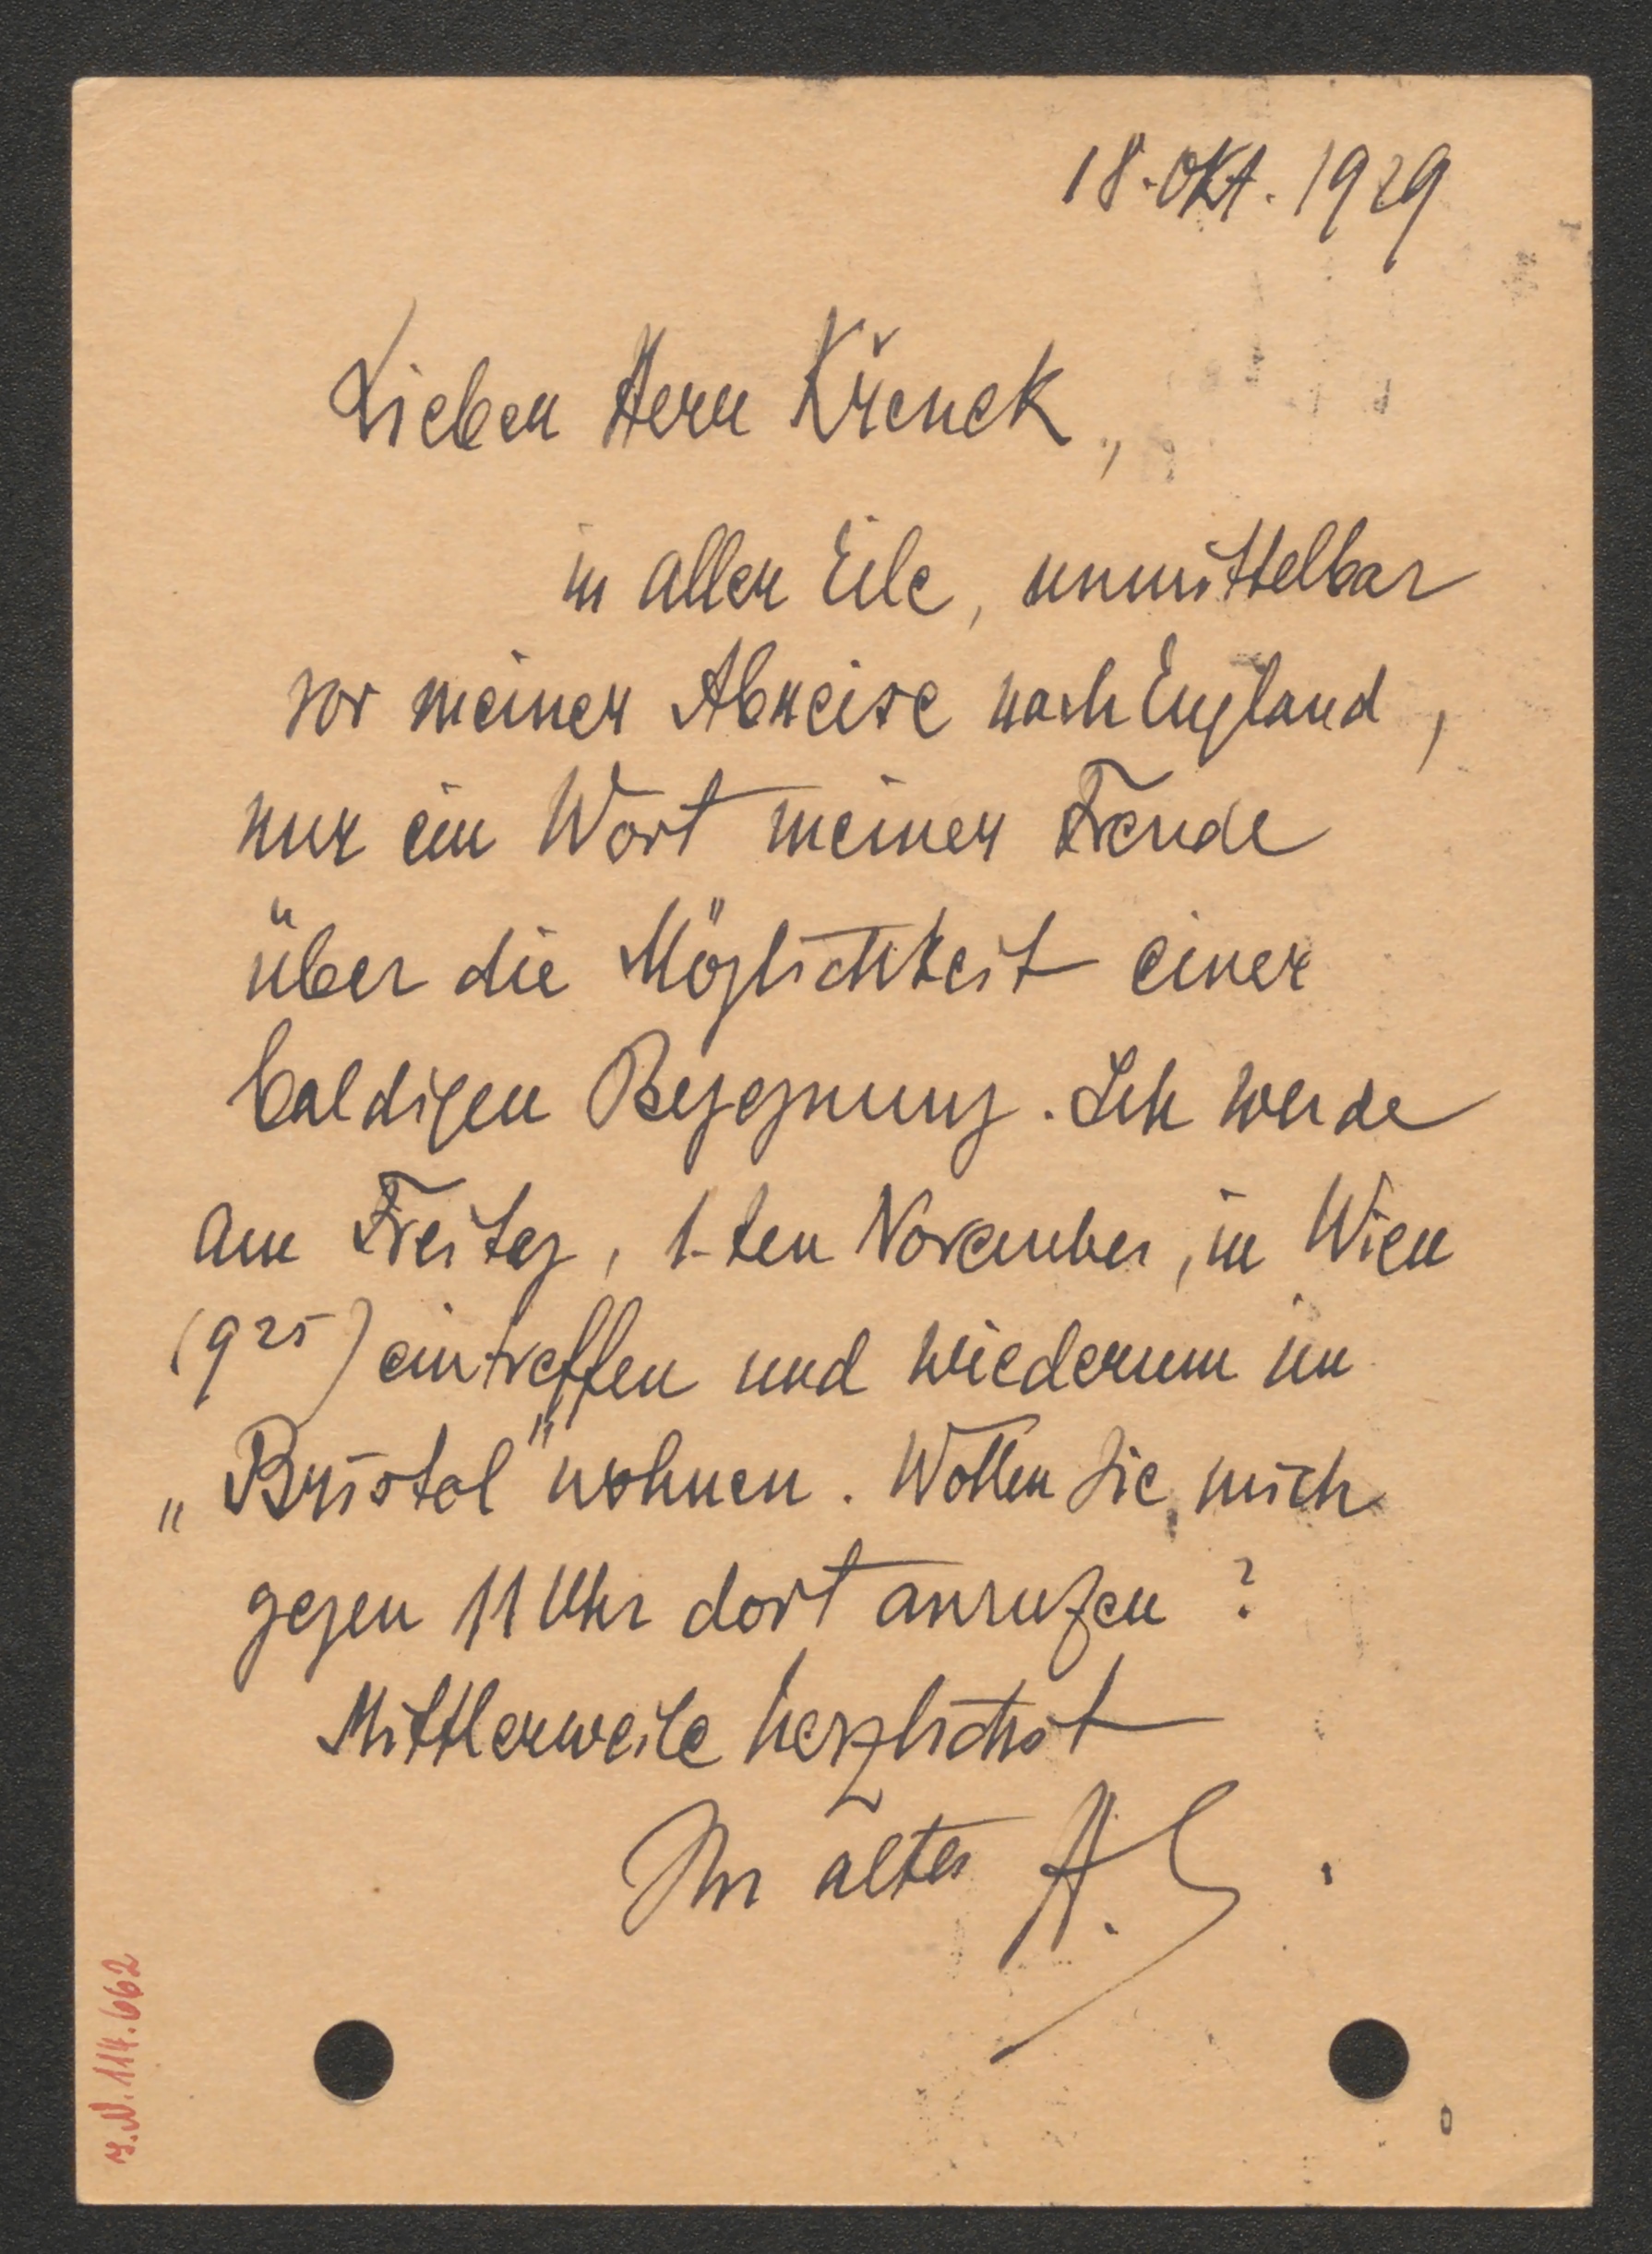 18. Okt. 1929
Lieber Herr Křenek,
in aller Eile, unmittelbar
vor meiner Abreise nach England,
nur ein Wort meiner Freude
über die Möglichkeit einer
baldigen Begegnung. Ich werde
am Freitag, 1-ten November, in Wien
(9 25) eintreffen und wiederum im
„Bristol" wohnen. Wollen Sie mich
gegen 11 Uhr dort anrufen?
Mittlerweile herzlichst
Ihr alter A. S.
I.N. 114.662